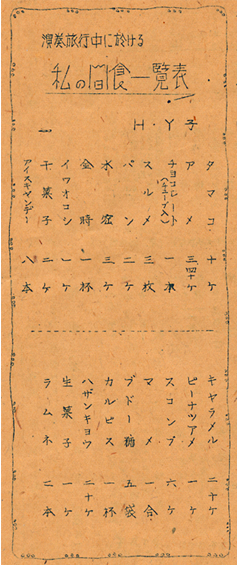 演奏旅行中に於ける
私の間食一覧表
H・Y子
タマコ 十ケ
アメ 三、四十ケ
チョコレート(チューブ入) 一本
スルメ 三枚
パン 二ケ
水蜜 三ケ
金時 一杯
イワオコシ 一ケ
干菓子 二ケ
アイスキャンデー 八本
キャラメル 二十ケ
ピーナツアメ 一ケ
スコンブ 六ケ
マメ 一合
ブドー糖 五袋
カルピス 一杯
ハザンキョウ 二十ケ
生菓子 一ケ
ラムネ 二本